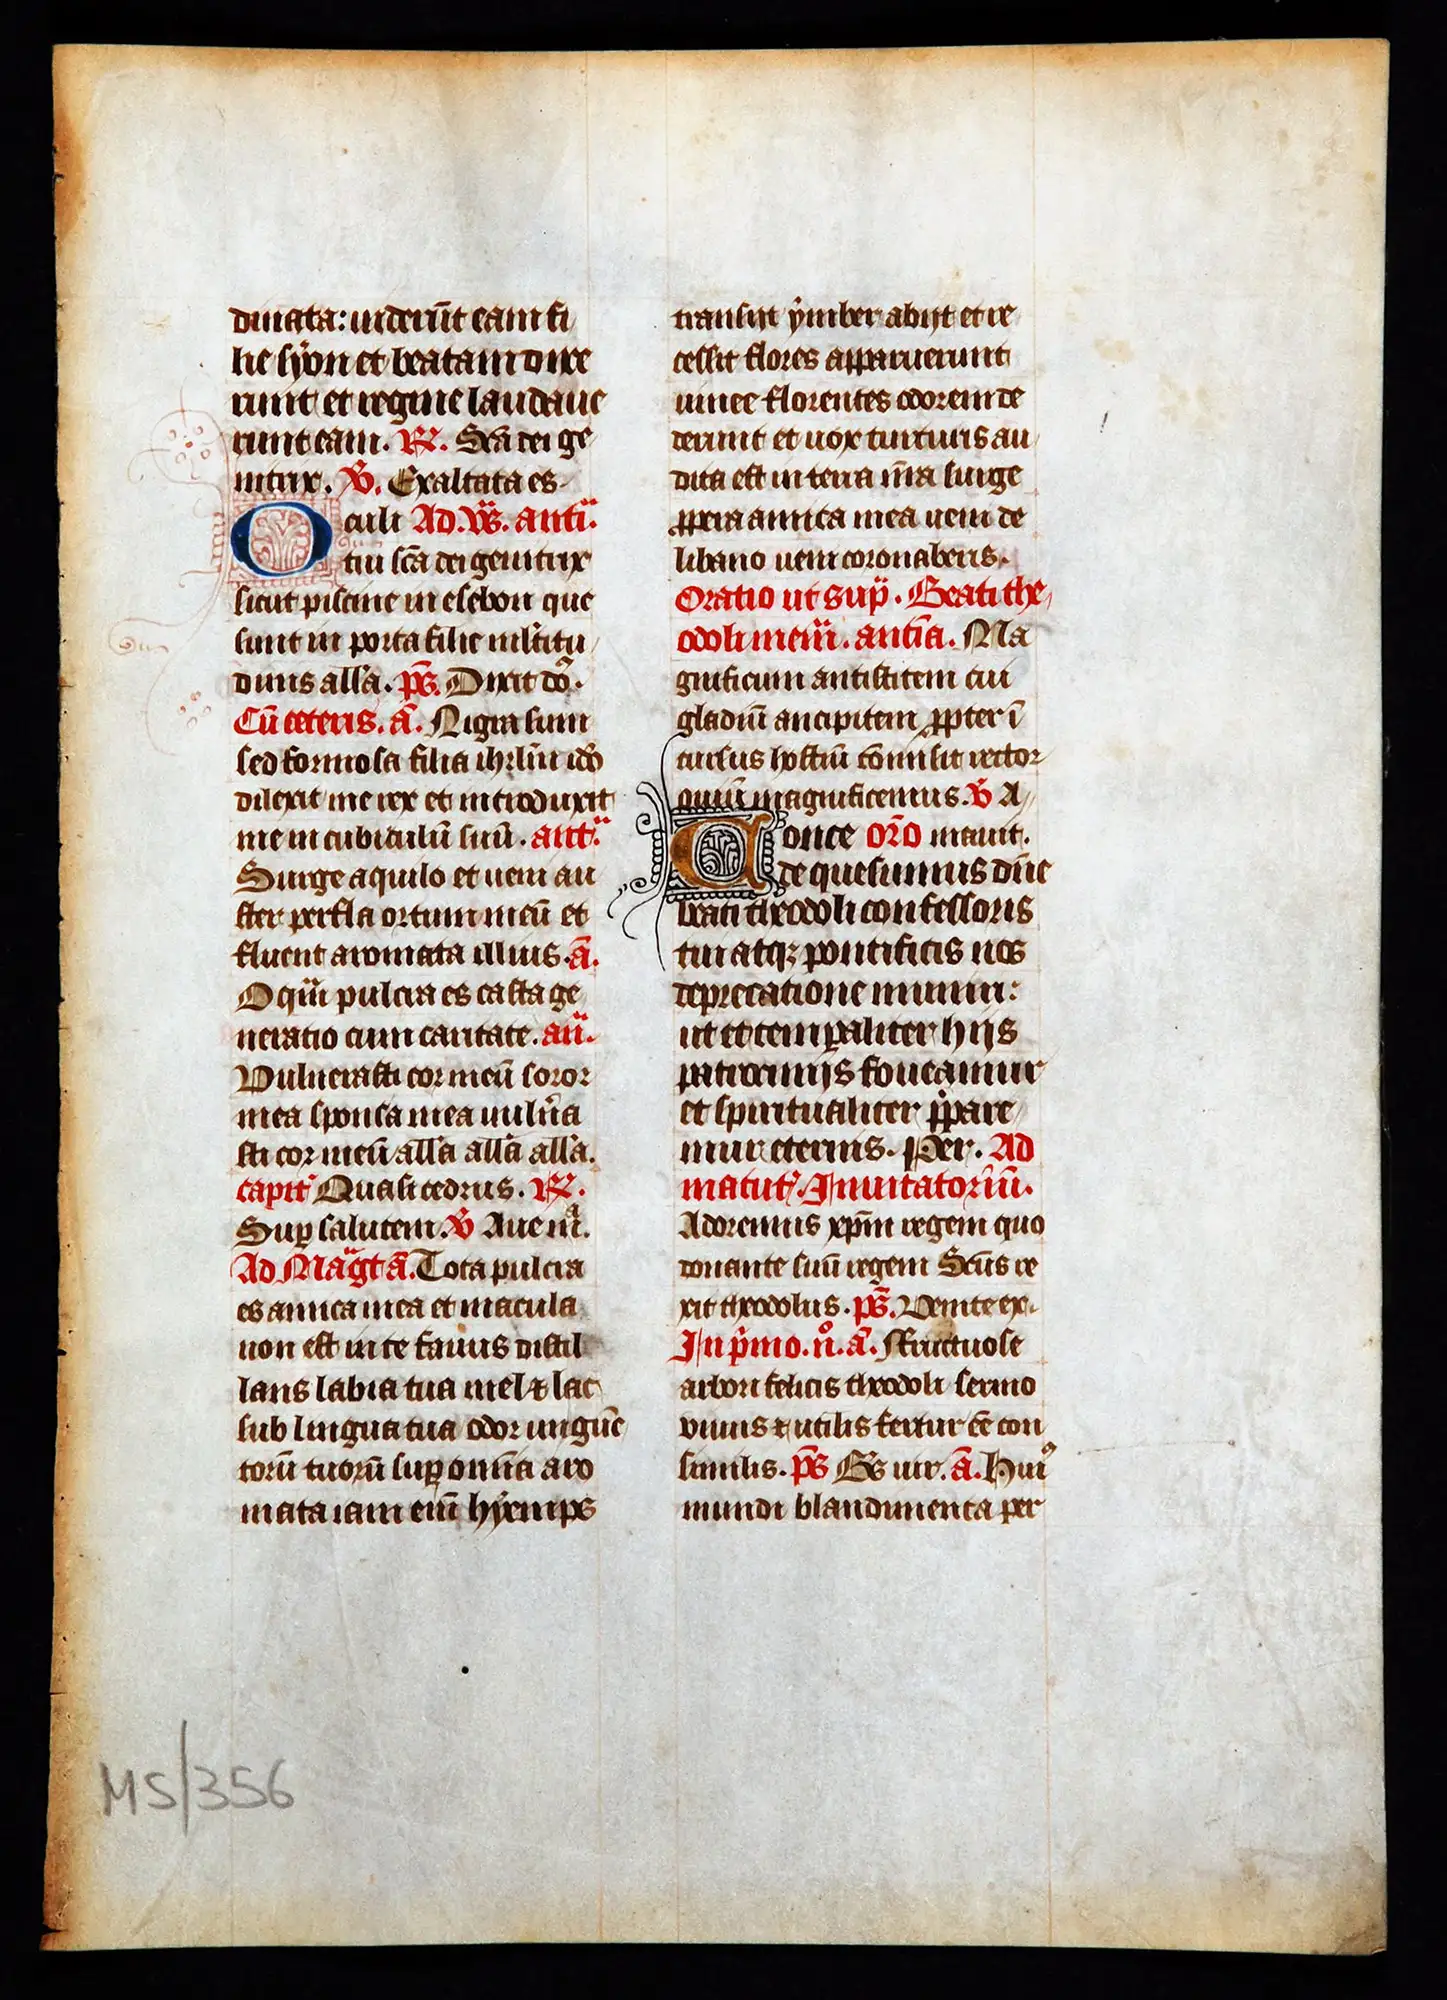 dinata: uiderūt eam fi
lie syon et beatam dixe
runt et regine laudaue
runt eam. R̄. Scā dei ge
nitrix. V̄. Exaltata es.
Oculi Ad. Vs̄. antī.
tui scā dei genitrix
sicut piscine in esebon que
sunt in porta filie ml̄titu
dinis all'a. ps̄. Dixit dō.
Cū ceteris. ā. Nigra sum
sed formosa filia ihrl̄m idō
dilexit me rex et introduxit
me in cubiculū suū. ant̄.
Surge aquilo et ueni au
ster perfla ortum meū et
fluent aromata illius. ā.
O qm̄ pulcra es casta ge
neratio cum caritate. an̄.
Vulnerasti cor meū soror
mea sponsa mea uuln̄a
sti cor meū all'a all'a all'a.
capit' Quasi cedrus. R̄.
Sup salutem. V̄ Aue m̄.
Ad Māgt ā. Tota pulcra
es amica mea et macula
non est in te fauus distil
lans labia tua mel ⁊ lac
sub lingua tua odor ungūe
torū tuorū sup omn̄a aro
mata iam enī hyemps
transiit ymber abijt et re
cessit flores apparuerunt
uinee florentes odorem de
derunt et uox turturis au
dita est in terra nr̄a surge
ppera amica mea ueni de
libano ueni coronaberis.
Oratio ut sup̄. Beati the
odoli mem̄. antīa. Ma
gnificum antistitem cui
gladiū ancipitem ppter ī
cursus hostiū cōmisit rector
quū magnificemus. V̄ A
once orō mauit.
Ade quesumus dn̄e
beati theodoli confessoris
tui atqꝫ pontificis nos
deprecatione muniri:
ut et temꝑaliter hijs
patrocinijs foueamur
et spiritualiter p̄pare
mur eternis. Per. Ad
matut'. Inuitatoriū.
Adoremus xp̄m regem quo
donante suū regem Scūs re
xit theodolus. ps̄. Venite ex.
In p̄mo. n̊. ā. Fructuose
arbori felicis theodoli sermo
uiuus ⁊ utilis fertur ēe con
similis. ps̄ Bs̄ uir. ā. Hui'
mundi blandimenta per
MS/356